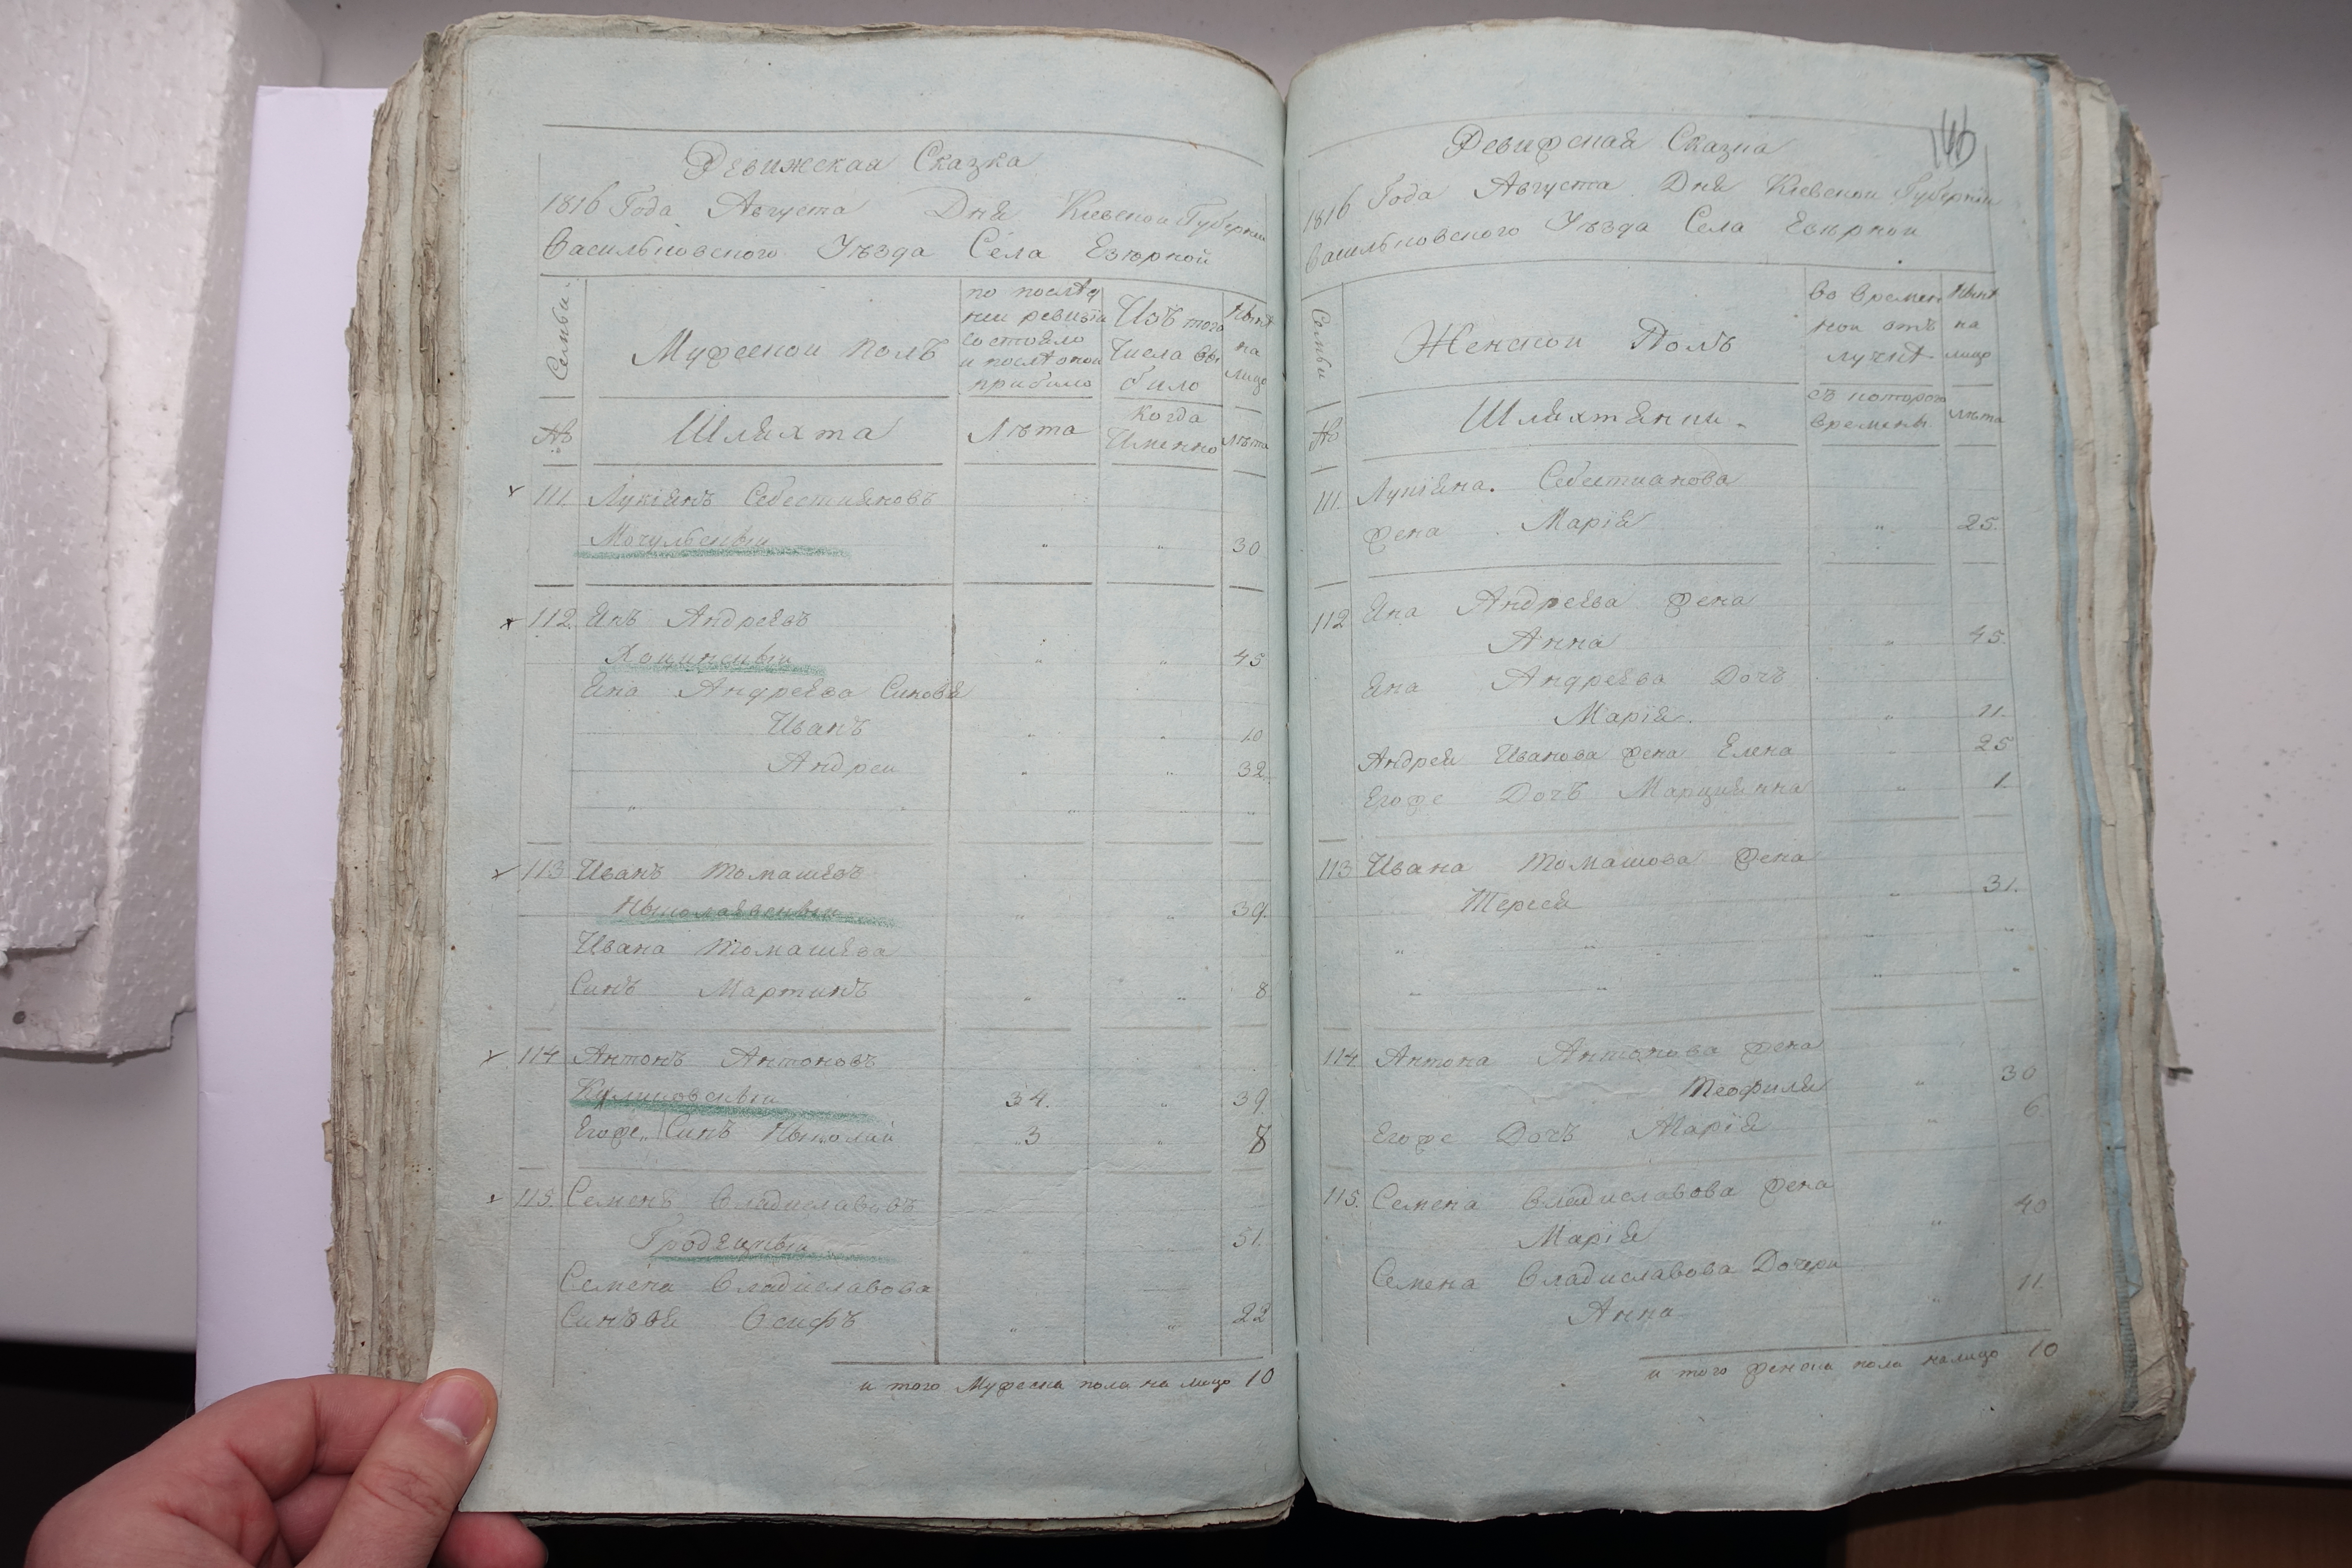 Ревижская Сказка
1816 Года Августа Дня Кіевской Губерніи
Васильковского Уѣзда Села Езѣрной
Семьи
Мужеской полъ
по послѣд
ней ревизіи
состояло
и послѣ оной
прибыло
Изъ того
числа вы
было
Нынѣ
на
лицо
№
Шляхта
Лѣта
Когда
Именно
Лѣта
111. Лукіянъ Себестияновъ
Мочульскый " " 30
112. Янъ Андреевъ
" " 45
Яна Андреева Синовя
Иванъ " " 10
Андрей " " 32
" " " " "
113 Иванъ Томашевъ
" " 39.
Ивана Томашева
Синъ Мартинъ " " 8
114 Антонъ Антоновъ
Куликовскый 34. " 39.
Егоже Синъ Ныколай 3 " 8
115. Семенъ Владиславовъ
51.
Семена Владиславова
Синовя Осифъ " " 22
и того Мужеска пола на лицо 10
146
Ревижская Сказка
1816 Года Августа Дня Кіевской Губерніи
Васильковского Уѣзда Села Езѣрной
Семьи
Женской Полъ
во времен
ной отъ
лучкѣ
Нынѣ
на
лицо
№
Шляхтянки
съ которого
времены
лѣта
111. Лукіяна Себестианова
жена Марія " 25.
112 Яна Андреева жена
Анна " 45.
Яна Андреева Дочъ
Марія. " 11.
Андрея Иванова жена Елена " 25
Егоже Дочъ Марциянна " 1.
113 Ивана Томашова жена
Тереся " 31.
" " " "
" " " "
114 Антона Антонова жена
Теофиля " 30
Егоже Дочъ Марія " 6.
115. Семена Владиславова жена
Марія " 40
Семена Владиславова Дочери
Анна " 11.
и того женска пола налицо 10